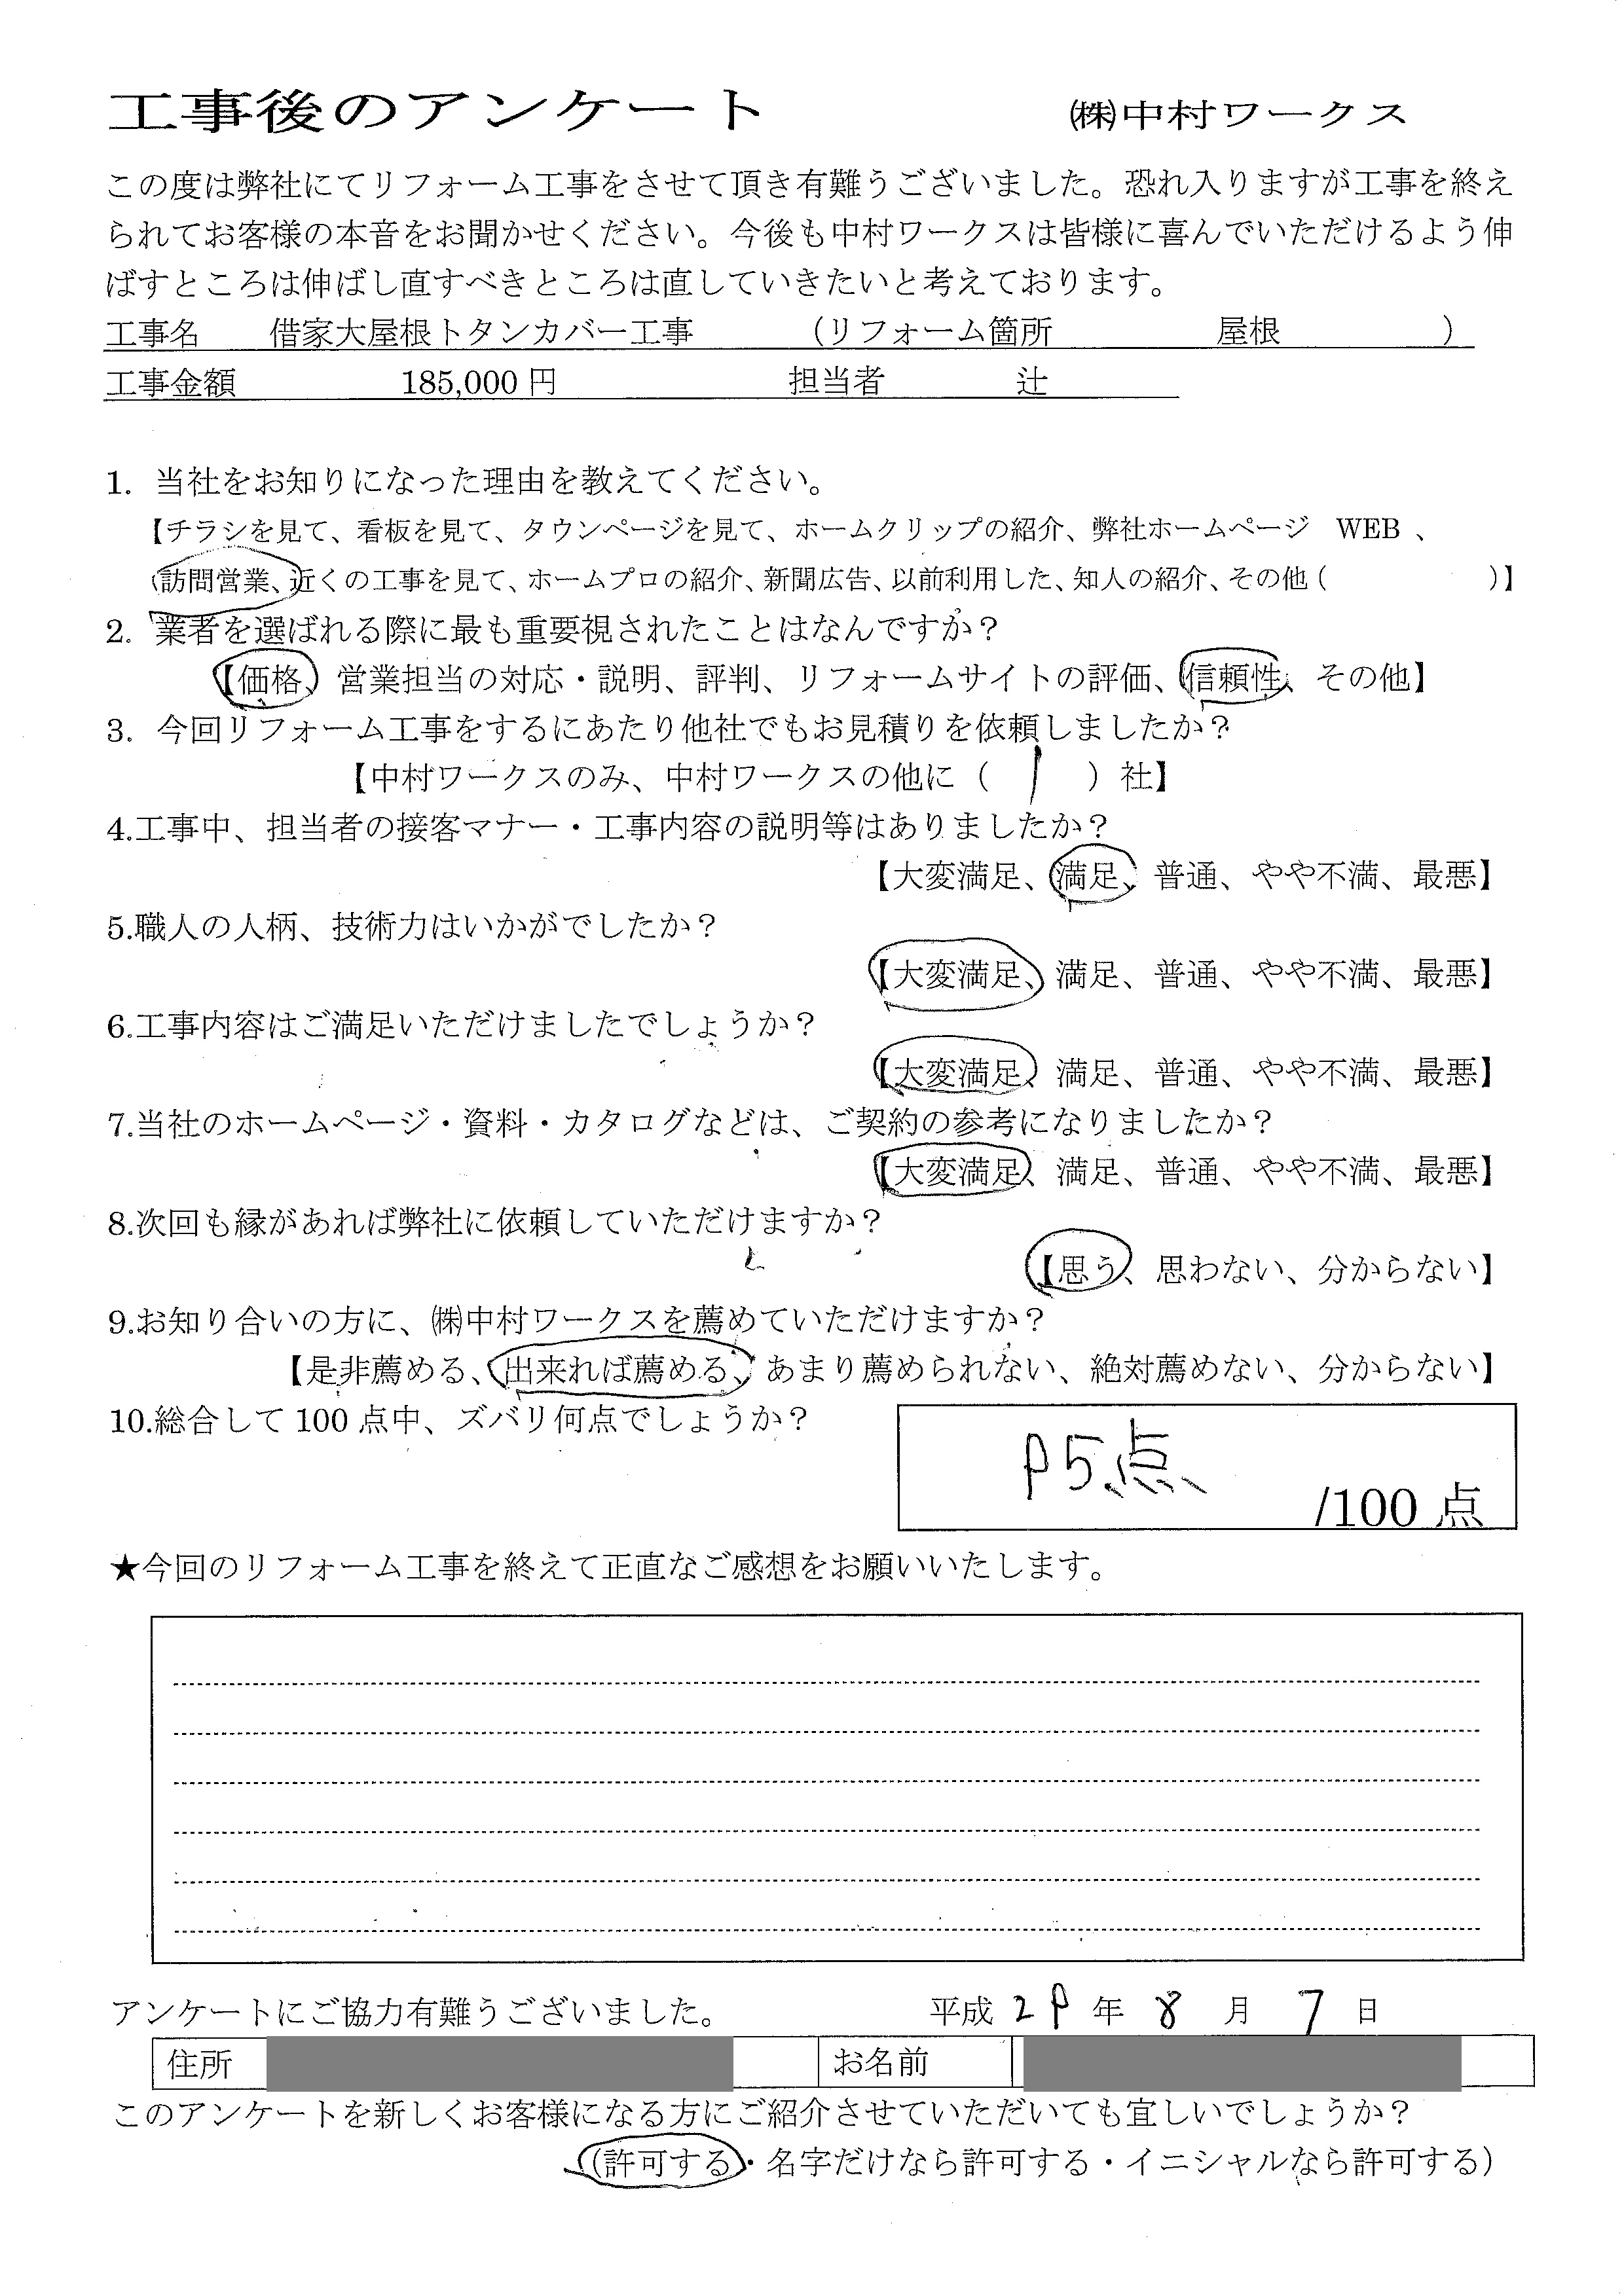 工事後のアンケート ㈱中村ワークス
この度は弊社にてリフォーム工事をさせて頂き有難うございました。恐れ入りますが工事を終え
られてお客様の本音をお聞かせください。今後も中村ワークスは皆様に喜んでいただけるよう伸
ばすところは伸ばし直すべきところは直していきたいと考えております。
工事名 借家大屋根トタンカバー工事 （リフォーム箇所 屋根 ）
工事金額 185,000 円 担当者 辻
1. 当社をお知りになった理由を教えてください。
【チラシを見て、看板を見て、タウンページを見て、ホームクリップの紹介、弊社ホームページ WEB 、
訪問営業、近くの工事を見て、ホームプロの紹介、新聞広告、以前利用した、知人の紹介、その他（ ）】
2. 業者を選ばれる際に最も重要視されたことはなんですか？
【価格、営業担当の対応・説明、評判、リフォームサイトの評価、信頼性、その他】
3. 今回リフォーム工事をするにあたり他社でもお見積りを依頼しましたか？
【中村ワークスのみ、中村ワークスの他に（ 1 ）社】
4.工事中、担当者の接客マナー・工事内容の説明等はありましたか？
【大変満足、満足、普通、やや不満、最悪】
5.職人の人柄、技術力はいかがでしたか？
【大変満足、満足、普通、やや不満、最悪】
6.工事内容はご満足いただけましたでしょうか？
【大変満足、満足、普通、やや不満、最悪】
7.当社のホームページ・資料・カタログなどは、ご契約の参考になりましたか？
【大変満足、満足、普通、やや不満、最悪】
8.次回も縁があれば弊社に依頼していただけますか？
【思う、思わない、分からない】
9.お知り合いの方に、㈱中村ワークスを薦めていただけますか？
【是非薦める、出来れば薦める、あまり薦められない、絶対薦めない、分からない】
10.総合して 100 点中、ズバリ何点でしょうか？
95点、
/100 点
★今回のリフォーム工事を終えて正直なご感想をお願いいたします。
アンケートにご協力有難うございました。 平成 29 年 8 月 7 日
住所 お名前
このアンケートを新しくお客様になる方にご紹介させていただいても宜しいでしょうか？
（許可する・名字だけなら許可する・イニシャルなら許可する）